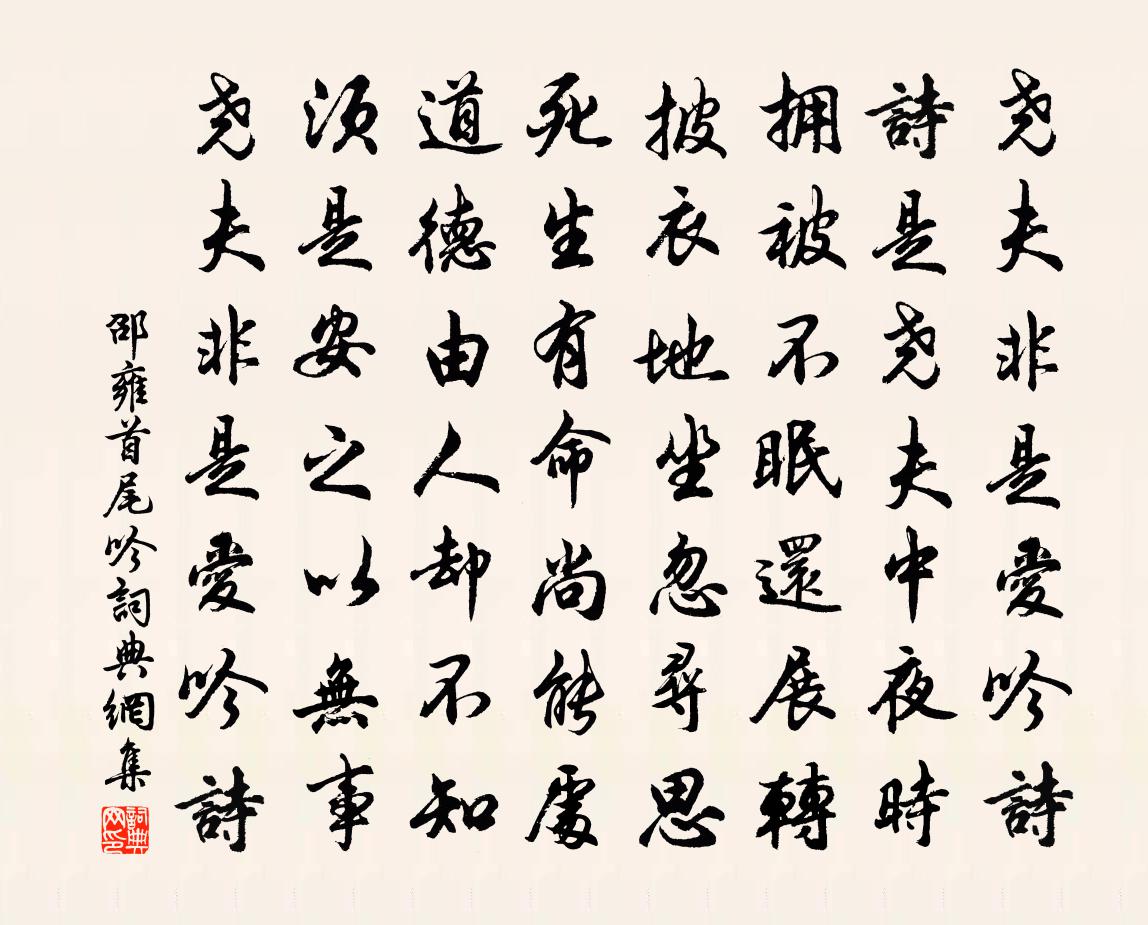 尧夫非是愛吟詩
詩是尧夫中夜時
拥被不眠還展轉
披衣地坐忽尋思
死生有命尚能處
道德由人却不知
須是安之以無事
尧夫非是愛吟詩
邵雍首尾吟詞典網集
詞典
网印